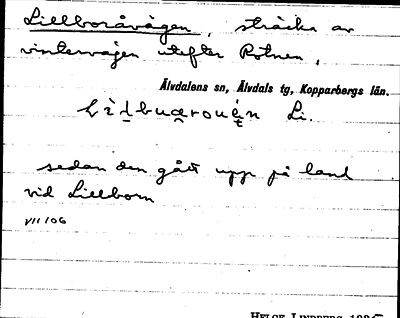 Lillboråvägen, sträcka av
vintervägen utefter Rotnen,
Älvdalens sn, Älvdals tg, Kopparbergs län.
Li.
sedan den gått upp på land
vid Lillborn
VII 106
HELGE LINDBERG 1935